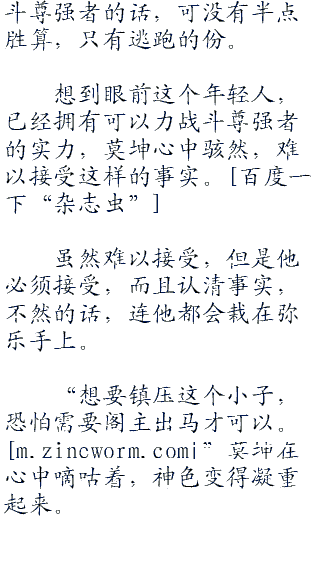 斗尊强者的话，可没有半点
胜算，只有逃跑的份。
想到眼前这个年轻人，
已经拥有可以力战斗尊强者
的实力，莫坤心中骇然，难
以接受这样的事实。[百度一
下“杂志虫”]
虽然难以接受，但是他
必须接受，而且认清事实，
不然的话，连他都会栽在弥
乐手上。
“想要镇压这个小子，
恐怕需要阁主出马才可以。
[m.zincworm.com]”莫坤在
心中嘀咕着，神色变得凝重
起来。